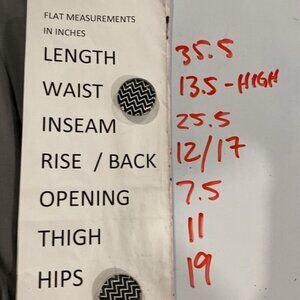 FLAT MEASUREMENTS
IN INCHES
LENGTH 35.5
WAIST 13.5 - HIGH
INSEAM 25.5
RISE / BACK 12/17
OPENING 7.5
THIGH 11
HIPS 19